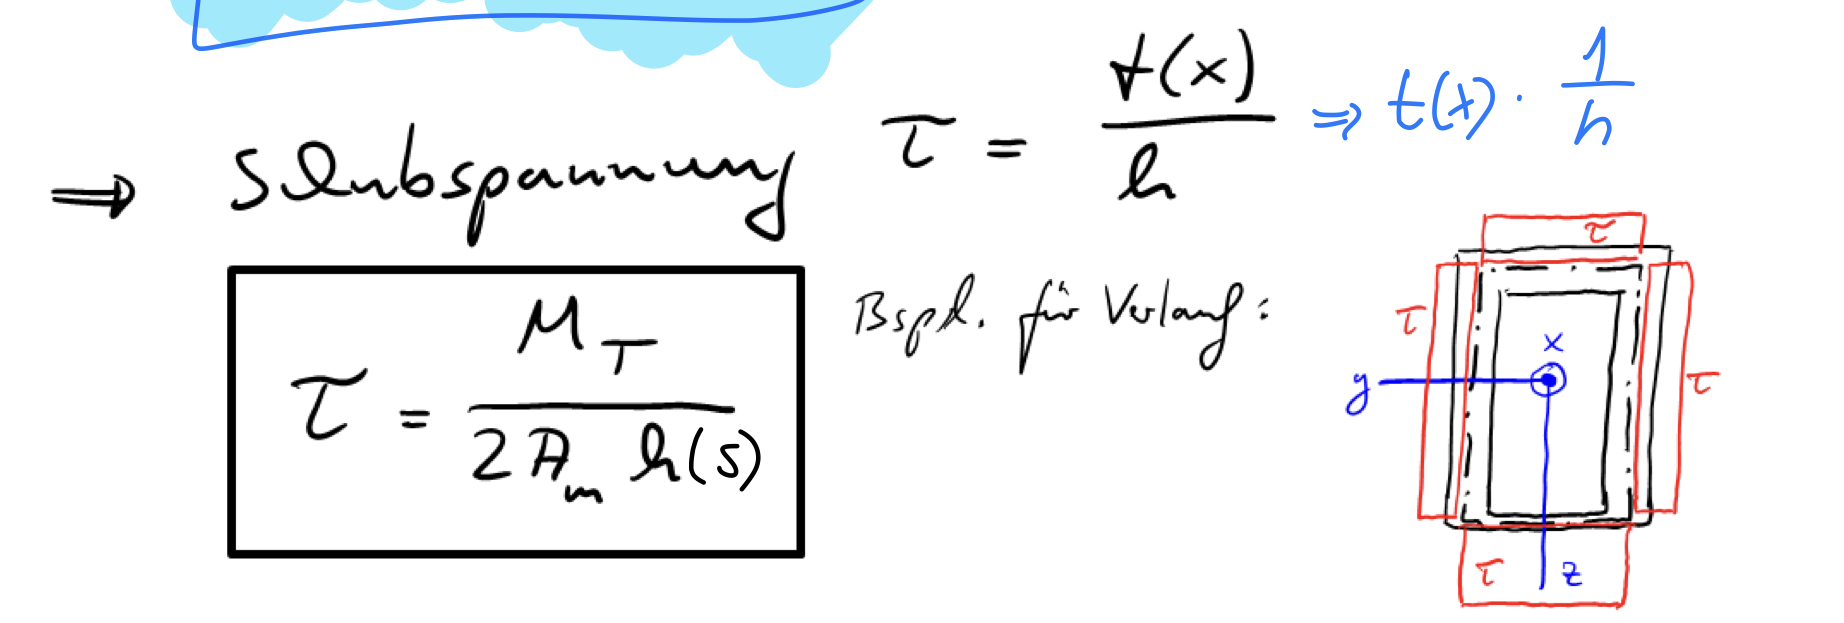 ⇒ Schubspannung τ = t(x)/h ⇒ t(x) · 1/h
τ = M_T / (2 A_m h(s))
Bspl. für Verlauf:
τ
τ
x
y
τ
τ
z